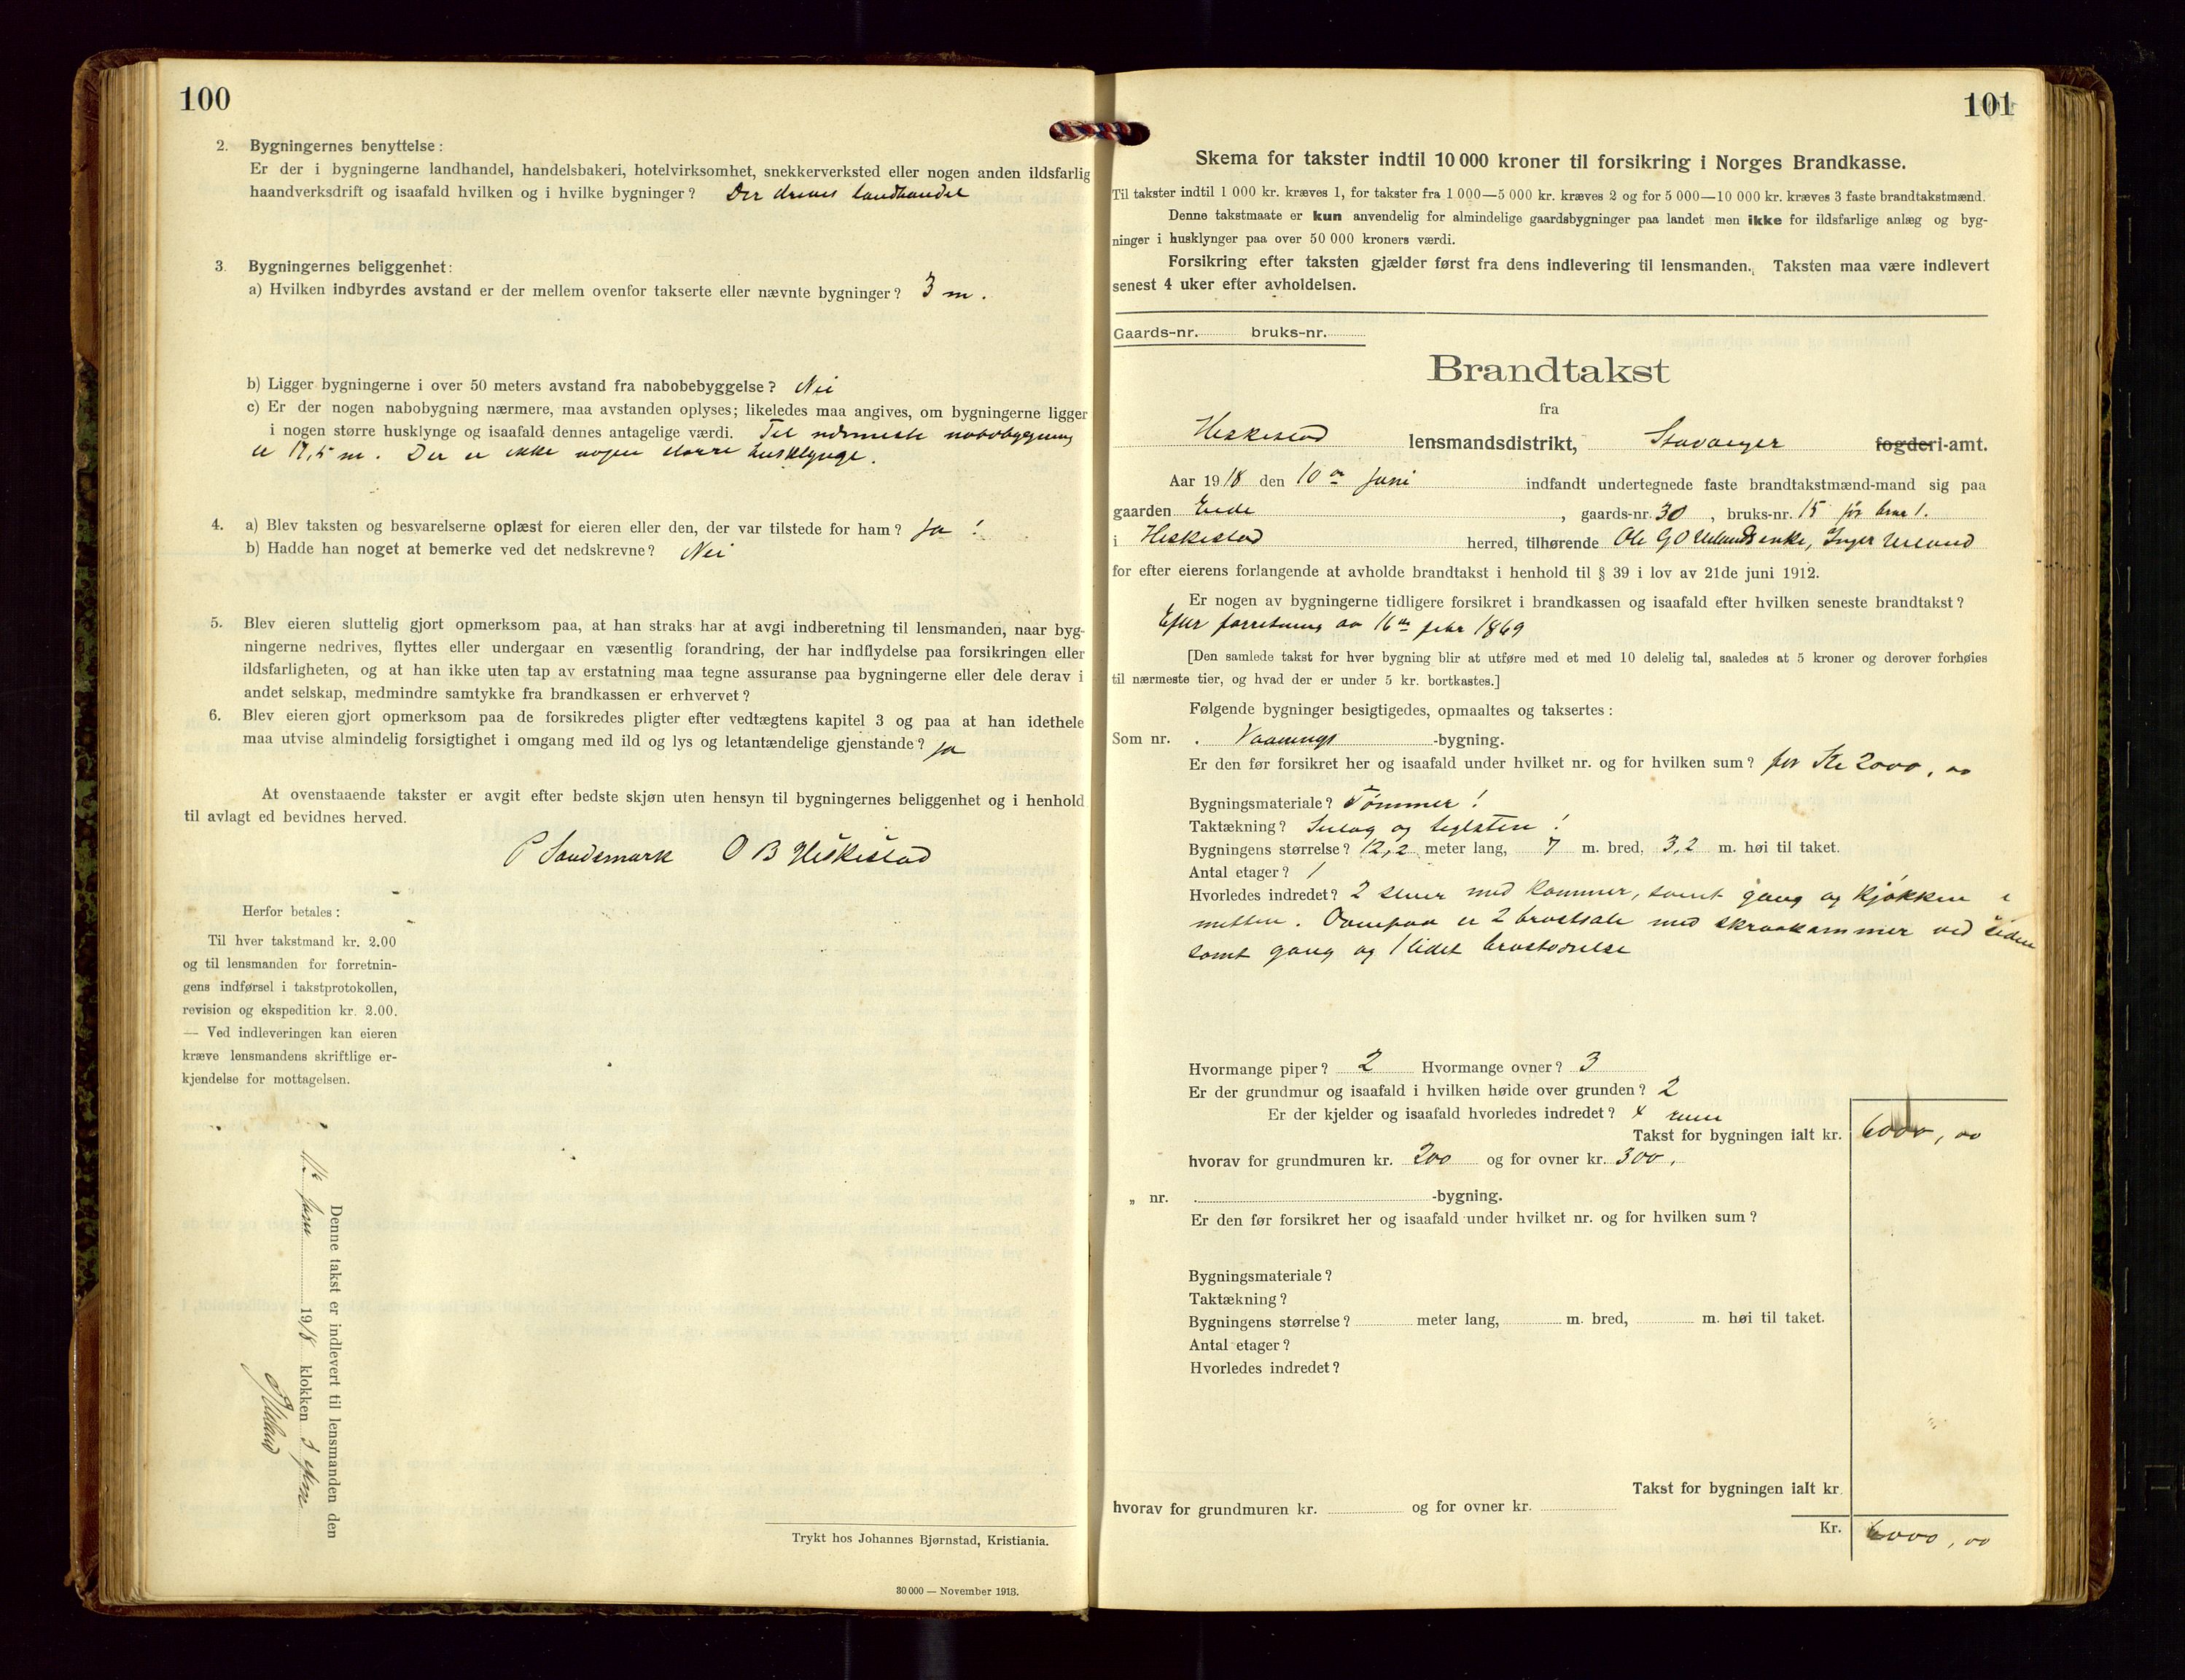 100
2. Bygningernes benyttelse:
Er der i bygningerne landhandel, handelsbakeri, hotelvirksomhet, snekkerverksted eller nogen anden ildsfarlig
haandverksdrift og isaafald hvilken og i hvilke bygninger? Der drives landhandel
3. Bygningernes beliggenhet:
a) Hvilken indbyrdes avstand er der mellem ovenfor takserte eller nævnte bygninger? 3 m.
b) Ligger bygningerne i over 50 meters avstand fra nabobebyggelse? Nei
c) Er der nogen nabobygning nærmere, maa avstanden oplyses; likeledes maa angives, om bygningerne ligger
i nogen større husklynge og isaafald dennes antagelige værdi. Til nærmeste nabobygning
er 17,5 m. Der er ikke nogen større husklynge.
4. a) Blev taksten og besvarelserne oplæst for eieren eller den, der var tilstede for ham? Ja!
b) Hadde han noget at bemerke ved det nedskrevne? Nei
5. Blev eieren sluttelig gjort opmerksom paa, at han straks har at avgi indberetning til lensmanden, naar byg-
ningerne nedrives, flyttes eller undergaar en væsentlig forandring, der har indflydelse paa forsikringen eller
ildsfarligheten, og at han ikke uten tap av erstatning maa tegne assuranse paa bygningerne eller dele derav i
andet selskap, medmindre samtykke fra brandkassen er erhvervet?
6. Blev eieren gjort opmerksom paa de forsikredes pligter efter vedtægtens kapitel 3 og paa at han idethele
maa utvise almindelig forsigtighet i omgang med ild og lys og letantændelige gjenstande? ja
At ovenstaaende takster er avgit efter bedste skjøn uten hensyn til bygningernes beliggenhet og i henhold
til avlagt ed bevidnes herved.
P Sandsmark O B Heskestad
Herfor betales:
Til hver takstmand kr. 2.00
og til lensmanden for forretnin-
gens indførsel i takstprotokollen,
revision og ekspedition kr. 2.00.
— Ved indleveringen kan eieren
kræve lensmandens skriftlige er-
kjendelse for mottagelsen.
Denne takst er indlevert til lensmanden den
juni 1918 klokken 3
Trykt hos Johannes Bjørnstad, Kristiania.
30 000 — November 1913.
101
Skema for takster indtil 10 000 kroner til forsikring i Norges Brandkasse.
Til takster indtil 1 000 kr. kræves 1, for takster fra 1 000—5 000 kr. kræves 2 og for 5 000—10 000 kr. kræves 3 faste brandtakstmænd.
Denne takstmaate er kun anvendelig for almindelige gaardsbygninger paa landet men ikke for ildsfarlige anlæg og byg-
ninger i husklynger paa over 50 000 kroners værdi.
Forsikring efter taksten gjælder først fra dens indlevering til lensmanden. Taksten maa være indlevert
senest 4 uker efter avholdelsen.
Gaards-nr. bruks-nr.
Brandtakst
fra
Heskestad lensmandsdistrikt, Stavanger fogderi-amt.
Aar 1918 den 10de Juni indfandt undertegnede faste brandtakstmænd-mand sig paa
gaarden Eide, gaards-nr. 30, bruks-nr. 15 før bnr 1.
i Heskestad herred, tilhørende Ole G O Uelands enke, Inger Ueland
for efter eierens forlangende at avholde brandtakst i henhold til § 39 i lov av 21de juni 1912.
Er nogen av bygningerne tidligere forsikret i brandkassen og isaafald efter hvilken seneste brandtakst?
Efter forretning av 16de febr 1869
[Den samlede takst for hver bygning blir at utføre med et med 10 delelig tal, saaledes at 5 kroner og derover forhøies
til nærmeste tier, og hvad der er under 5 kr. bortkastes.]
Følgende bygninger besigtigedes, opmaaltes og taksertes:
Som nr. Vaanings-bygning.
Er den før forsikret her og isaafald under hvilket nr. og for hvilken sum? for Kr 2000,00
Bygningsmateriale? Tømmer!
Taktækning? og teglsten!
Bygningens størrelse? 12,2 meter lang, 7 m. bred, 3,2 m. høi til taket.
Antal etager? 1
Hvorledes indredet? 2 stuer med kammer, samt gang og kjøkken i
mitten. Ovenpaa er 2 brystsale med skraakammer ved siden
samt gang og 1 lidet
Hvormange piper? 2 Hvormange ovner? 3
Er der grundmur og isaafald i hvilken høide over grunden? 2
Er der kjelder og isaafald hvorledes indredet? rum
Takst for bygningen ialt kr. 6000,00
hvorav for grundmuren kr. 200 og for ovner kr. 300,
„ nr. -bygning.
Er den før forsikret her og isaafald under hvilket nr. og for hvilken sum?
Bygningsmateriale?
Taktækning?
Bygningens størrelse? meter lang, m. bred, m. høi til taket.
Antal etager?
Hvorledes indredet?
Takst for bygningen ialt kr.
hvorav for grundmuren kr. og for ovner kr.
Kr. 6000,00